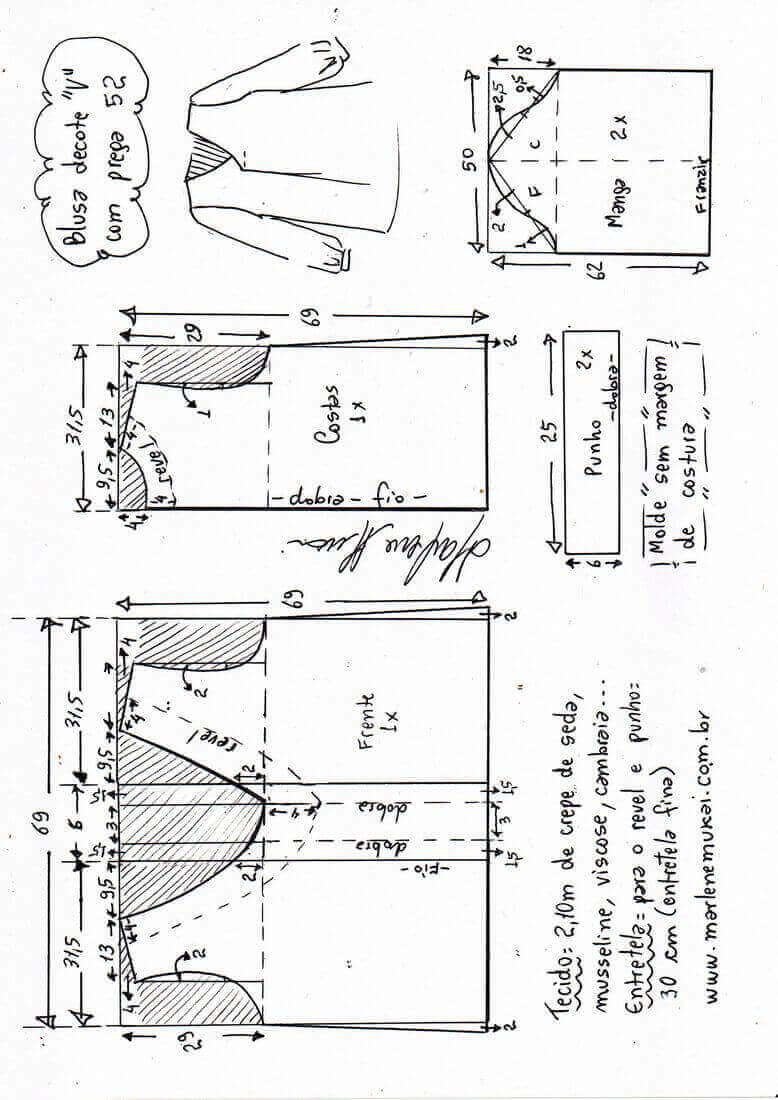 Blusa decote "V"
com prega 52
69
31,5
6
31,5
13
9,5
1,5
3
1,5
9,5
4
4
4
4
29
2
2
2
2
revel
4
69
Frente
1x
-fio-
dobra
dobra
2
1,5
3
1,5
2
31,5
9,5
13
4
4
4
4
revel
1
29
69
Costas
1x
-dobra-fio-
2
50
18
2
2,5
0,5
1
F
C
Manga 2x
62
Franzir
25
6
Punho 2x
-dobra-
Molde sem margem
de costura
Tecido= 2,10m de crepe de seda,
musseline, viscose, cambraia...
Entretela= para o revel e punho=
30 cm (entretela fina)
www.marlenemukai.com.br